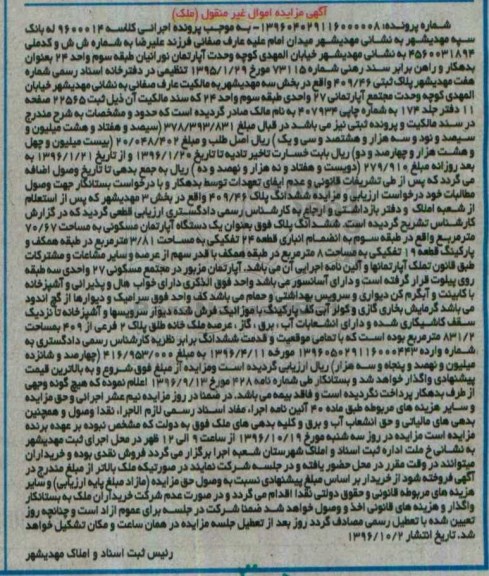 آگهی مزایده اموال غیر منقول (ملک)
شماره پرونده: ۱۳۹۶۰۴۰۲۹۱۱۶۰۰۰۰۰۸- به موجب پرونده اجرائی کلاسه ۹۶۰۰۰۱۴ له بانک
سپه مهدیشهر به نشانی مهدیشهر میدان امام علیه عارف صفائی فرزند علیرضا به شماره ش ش و کدملی
۴۵۶۰۰۳۱۸۹۴ به نشانی مهدیشهر خیابان المهدی کوچه وحدت آپارتمان نورانیان طبقه سوم واحد ۲۴ بعنوان
بدهکار و راهن برابر سند رهنی شماره ۷۳۱۱۵ مورخ ۱۳۹۵/۱/۲۹ تنظیمی در دفترخانه اسناد رسمی شماره
هفت مهدیشهر پلاک ثبتی ۴۰۹/۴۶ واقع در بخش سه مهدیشهر به مالکیت عارف صفائی به نشانی مهدیشهر خیابان
المهدی کوچه وحدت مجتمع آپارتمانی ۲۷ واحدی طبقه سوم واحد ۲۴ که سند مالکیت آن ذیل ثبت ۲۲۵۶۵ صفحه
۱۱ دفتر جلد ۱۷۴ به شماره چاپی ۴۰۷۹۳۴ به نام مالک صادر گردیده است که حدود و مشخصات به شرح مندرج
در سند مالکیت و پرونده ثبتی نیز می باشد در قبال مبلغ ۳۷۸/۳۹۳/۸۳۱ (سیصد و هفتاد و هشت میلیون و
سیصد و نود و سه هزار و هشتصد و سی و یک) ریال اصل طلب و مبلغ ۲۰/۰۴۸/۴۰۲ (بیست میلیون و چهل
و هشت هزار و چهارصد و دو) ریال بابت خسارت تاخیر تادیه تا تاریخ ۱۳۹۶/۱/۲۰ و از تاریخ ۱۳۹۶/۱/۲۱ به
بعد روزانه مبلغ ۲۷۹/۹۱۰ (دویست و هفتاد و نه هزار و نهصد و ده) ریال به جمع بدهی تا تاریخ وصول اضافه
می گردد که پس از طی تشریفات قانونی و عدم ایفای تعهدات توسط بدهکار و با درخواست بستانکار جهت وصول
مطالبات خود درخواست ارزیابی و مزایده ششدانگ پلاک ۴۰۹/۴۶ واقع در بخش ۳ مهدیشهر که پس از استعلام
از شعبه املاک و دفتر بازداشتی و ارجاع به کارشناس رسمی دادگستری ارزیابی قطعی گردید که در گزارش
کارشناس تشریح گردیده است. ششدانگ پلاک فوق بعنوان یک دستگاه آپارتمان مسکونی به مساحت ۷۰/۶۷
مترمربع واقع در طبقه سوم به انضمام انباری قطعه ۲۴ تفکیکی به مساحت ۳/۸۱ مترمربع در طبقه همکف و
پارکینگ قطعه ۱۹ تفکیکی به مساحت ۸ مترمربع در طبقه همکف با قدر سهم از عرصه و سایر مشاعات و مشترکات
طبق قانون تملک آپارتمانها و آئین نامه اجرایی آن می باشد. آپارتمان مزبور در مجتمع مسکونی ۲۷ واحدی سه طبقه
روی پیلوت قرار گرفته است و دارای آسانسور می باشد واحد فوق الذکری دارای خواب هال و پذیرانی و آشپزخانه
با کابینت و آبگرم کن دیواری و سرویس بهداشتی و حمام می باشد کف واحد فوق سرامیک و دیوارها از گچ اندود
می باشد گرمایش بخاری گازی و کولر آبی کف پارکینگ با موزائیک فرش شده دیوار سرویسها و آشپزخانه تا نزدیک
سقف کاشیکاری شده و دارای انشعابات آب، برق، گاز، عرصه ملک خانه طلق پلاک ۲ فرعی از ۴۰۹ بمساحت
۸۳۱/۲ مترمربع بوده است که با تمامی موقعیت و قدمت ششدانگ برابر نظریه کارشناس رسمی دادگستری به
شماره وارده ۱۳۹۶۰۵۰۲۹۱۱۶۰۰۰۴۴۳ مورخه ۱۳۹۶/۴/۱۱ به مبلغ ۴۱۶/۹۵۳/۰۰۰ (چهارصد و شانزده
میلیون و نهصد و پنجاه و سه هزار) ریال ارزیابی گردیده است ومزایده از مبلغ فوق شروع و به بالاترین قیمت
پیشنهادی واگذار خواهد شد و بستانکار طی شماره نامه ۴۲۸ مورخ ۱۳۹۶/۹/۱۳ اعلام نموده که هیچ گونه وجهی
از طرف بدهکار پرداخت نگردیده است و فاقد بیمه می باشد. در ضمنا در روز مزایده نیم عشر اجرائی و حق مزایده
و سایر هزینه های مربوطه طبق ماده ۴۰ آئین نامه اجراء مفاد اسناد رسمی لازم الاجراء نقدا وصول و همچنین
بدهی های مالیاتی و حق انشعاب آب و برق و کلیه بدهی های ملک فوق به دولت که مشخص نبوده بر عهده برنده
مزایده است مزایده در روز سه شنبه مورخ ۱۳۹۶/۱۰/۱۹ از ساعت ۹ الی ۱۲ ظهر در محل اجرای ثبت مهدیشهر
به نشانی خ ملت اداره ثبت اسناد و املاک شهرستان شعبه اجرا برگزار می گردد فروش نقدی بوده و خریداران
میتوانند در وقت مقرر در محل حضور یافته و در جلسه شرکت نمایند در صورتیکه ملک بالاتر از مبلغ مندرج در
آگهی فروخته شود از خریدار بر اساس مبلغ پیشنهادی نسبت به وصول حق مزایده (مازاد مبلغ پایه ارزیابی) و سایر
هزینه های مربوطه قانونی و حقوق دولتی نقدا اقدام می گردد و در صورت عدم شرکت خریداران ملک به بستانکار
واگذار و هزینه های قانونی اخذ و وصول خواهد شد ضمنا شرکت در جلسه برای عموم ازاد است و چنانچه روز
تعیین شده با تعطیل رسمی مصادف گردد روز بعد از تعطیل جلسه مزایده در همان ساعت و مکان تشکیل خواهد
شد. تاریخ انتشار ۱۳۹۶/۱۰/۲
رئیس ثبت اسناد و املاک مهدیشهر